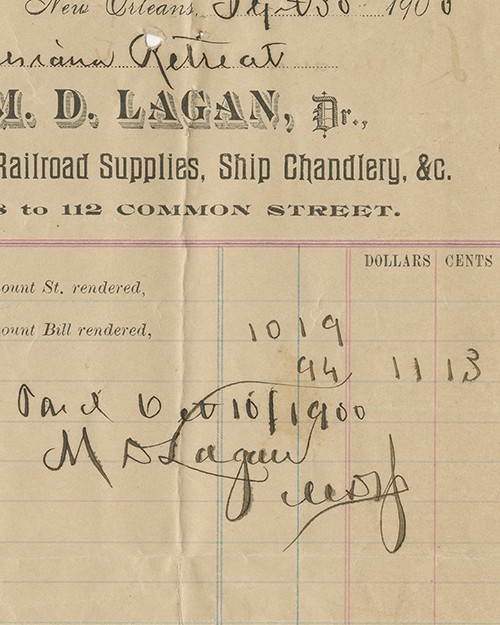 New Orleans, Sept 30 1900
Retreat
M. D. LAGAN, Dr.,
Railroad Supplies, Ship Chandlery, &c.
to 112 COMMON STREET.
DOLLARS CENTS
ount St. rendered,
ount Bill rendered, 10 19
94 11 13
Paid Oct 10/1900
M D Lagan